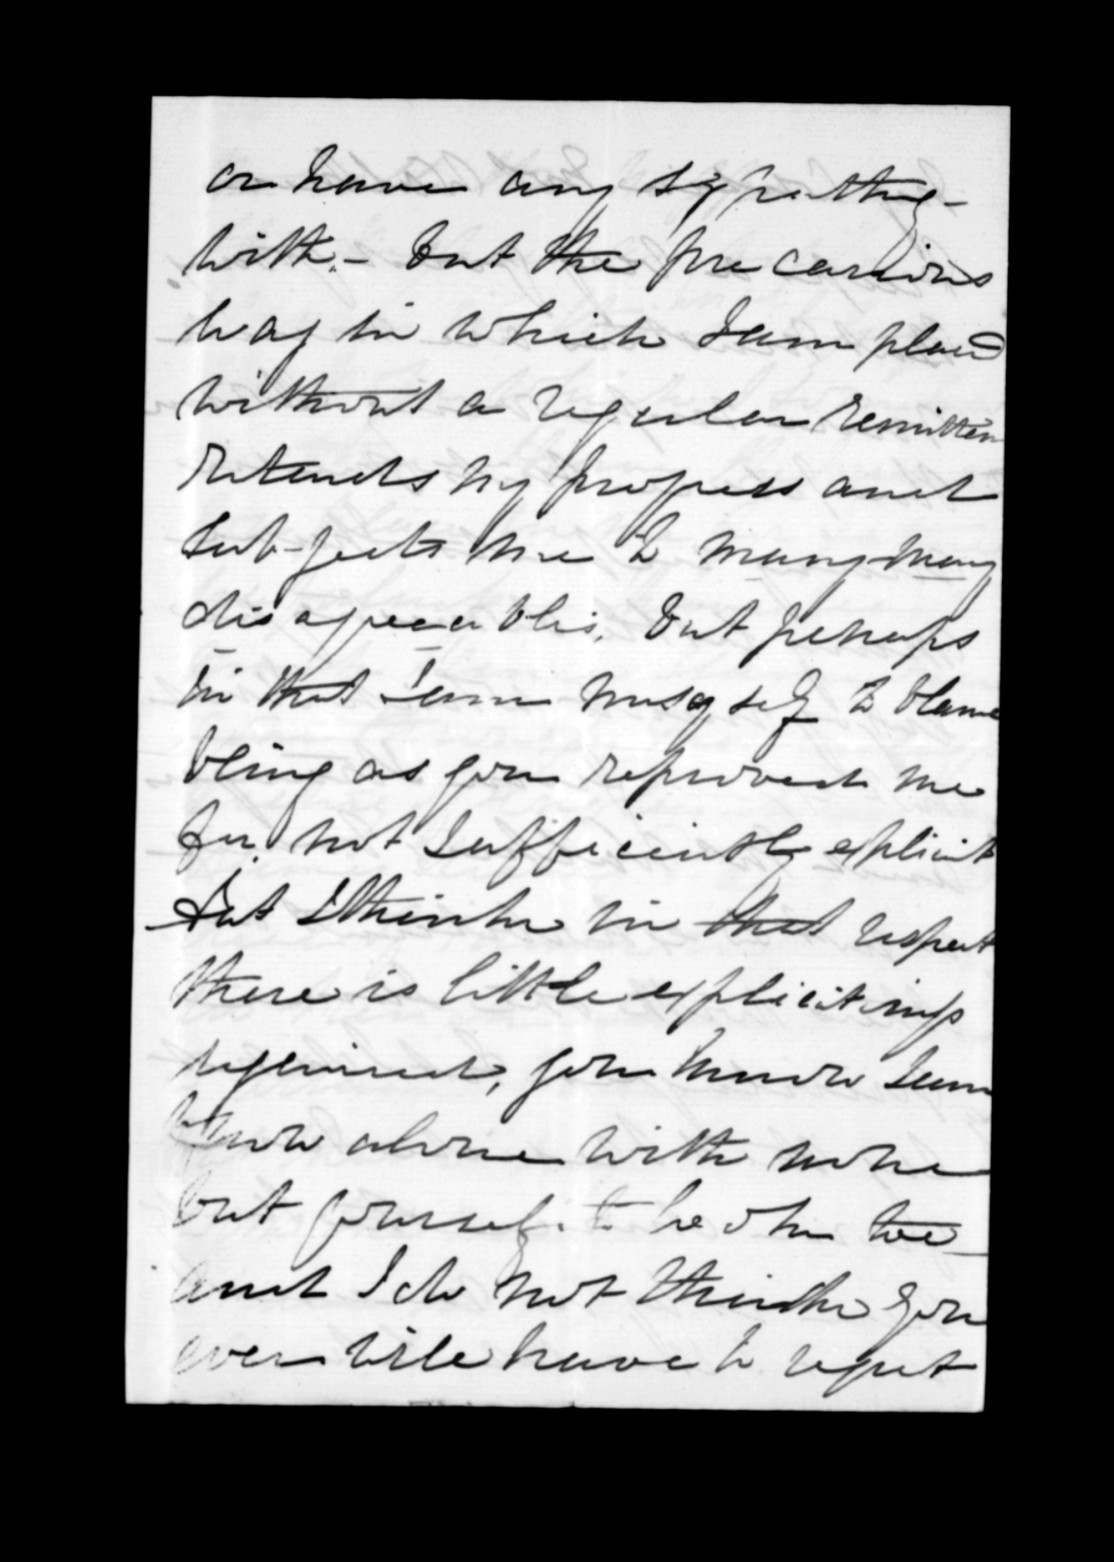 or have any sypathy-
with. - but the precarious
way in which I am placed
without a regular remittance
retards my progress and
sub-jects me to many many
disagreeables. but perhaps
in that I am myself to blame
being as you reproved me
for not sufficiently explicit
but I think in that respect
there is little explicitness
required, you know I am
now alone with none
but yourself to look to
and I do not think you
ever will have to regret